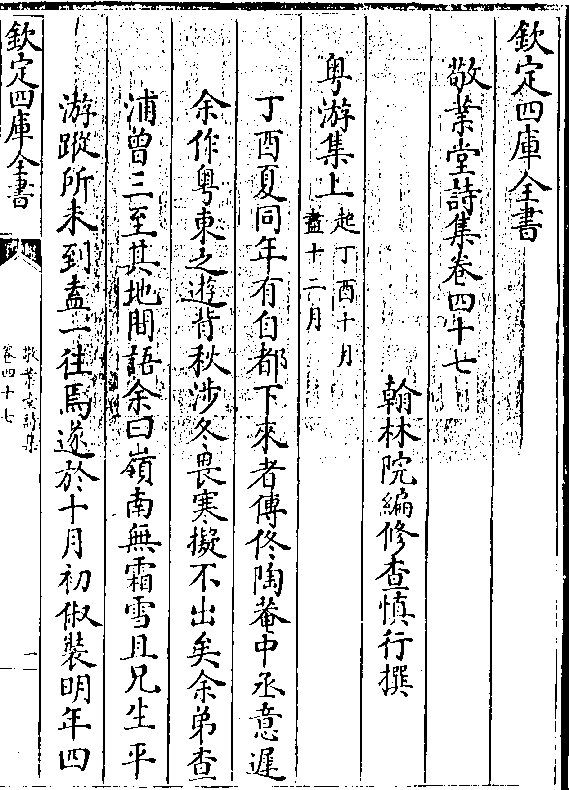 欽定四庫全書
敬業堂詩集卷四十七
翰林院編修查慎行撰
粤游集上起丁酉十月
盡十二月
丁酉夏同年有自都下來者傳佟陶菴中丞意遲
余作粤東之遊背秋涉冬畏寒擬不出矣余弟查
浦曾三至其地閒語余曰嶺南無霜雪且兄生平
游蹤所未到盍一往焉遂於十月初俶裝明年四
欽定四庫全書
敬業堂詩集
卷四十七
一